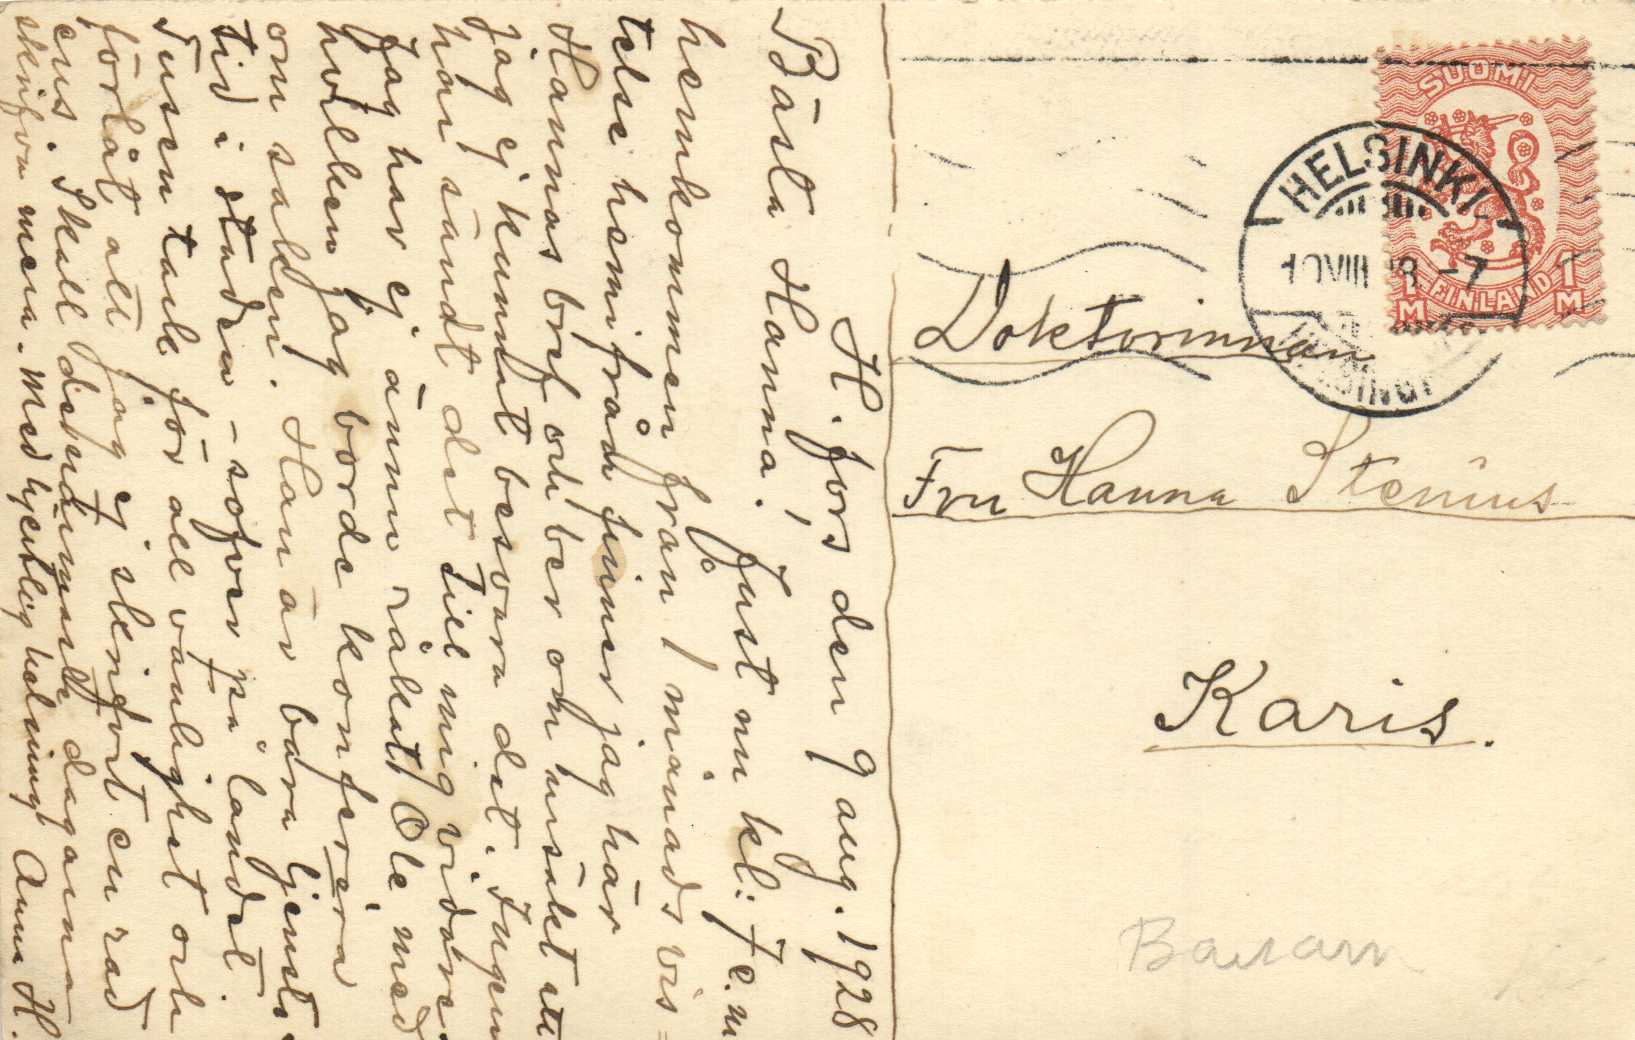 H.fors den 9 aug. 1928
Bästa Hanna!
Just nu kl: 7 e.m
hemkommen från 1 månads vis-
telse hemifrån finner jag här
Hannas bref och ber om ursäkt att
jag ej kunnat besvara det. Ingen
har sändt det till mig vidare.
Jag har ej ännu råkat Ole, med
hvilken jag borde konferera
om saken. Han är bara tjenste-
tid i staden - sofver på landet
Tusen tack för all vänlighet och
förlåt, att jag ej skrifvit en rad
ens. Skall de närmaste dagarna
skrifva mera. Med hjertlig helsning Anna H.
SUOMI
FINLAND
1 M
1 M
HELSINKI
10 VIII 28 -7
HELSINGFORS
Doktorinnan
Fru Hanna Stenius
Karis.